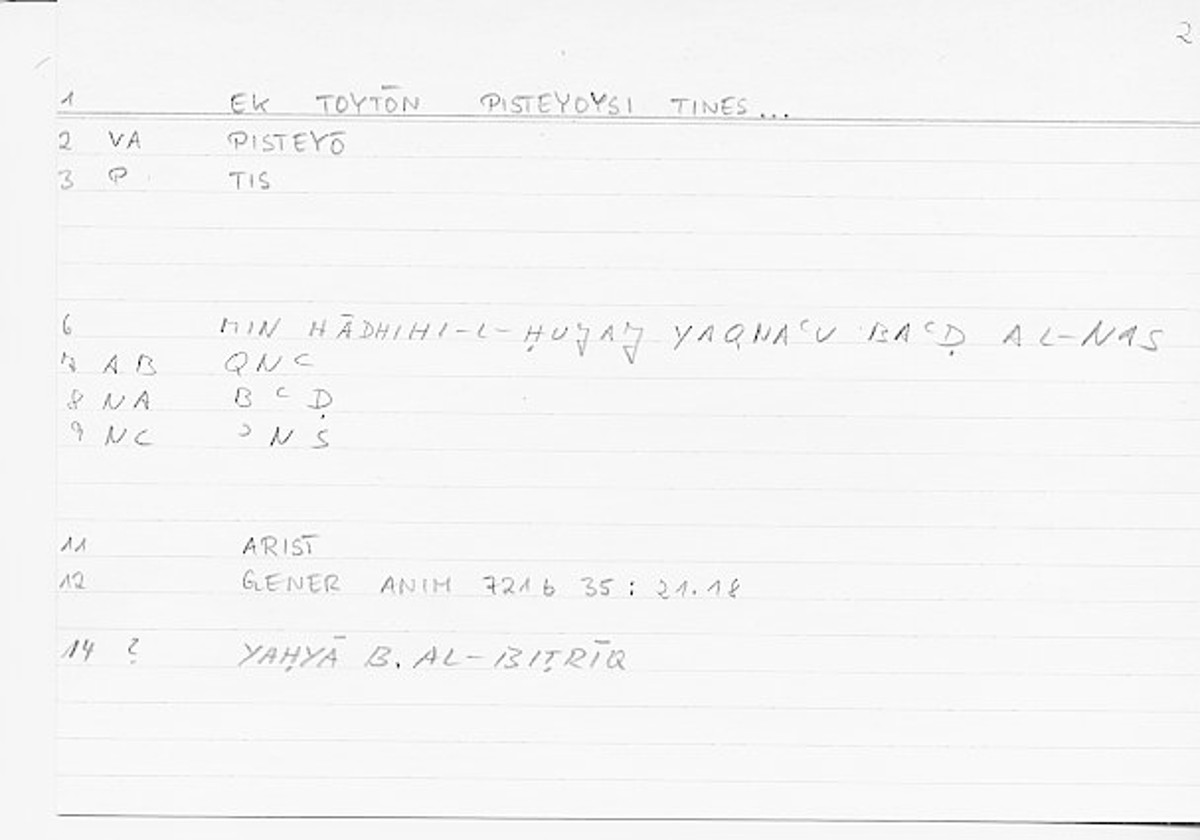 2
1 EK TOYTŌN PISTEYOYSI TINES...
2 VA PISTEYŌ
3 P TIS
6 MIN HĀDHIHI-L-ḤUJAJ YAQNAʿU BAʿḌ AL-NAS
7 AB QNʿ
8 NA BʿḌ
9 NC ʾNS
11 ARIST
12 GENER ANIM 721b 35 : 21.18
14 ? YAḤYĀ B. AL-BIṬRĪQ